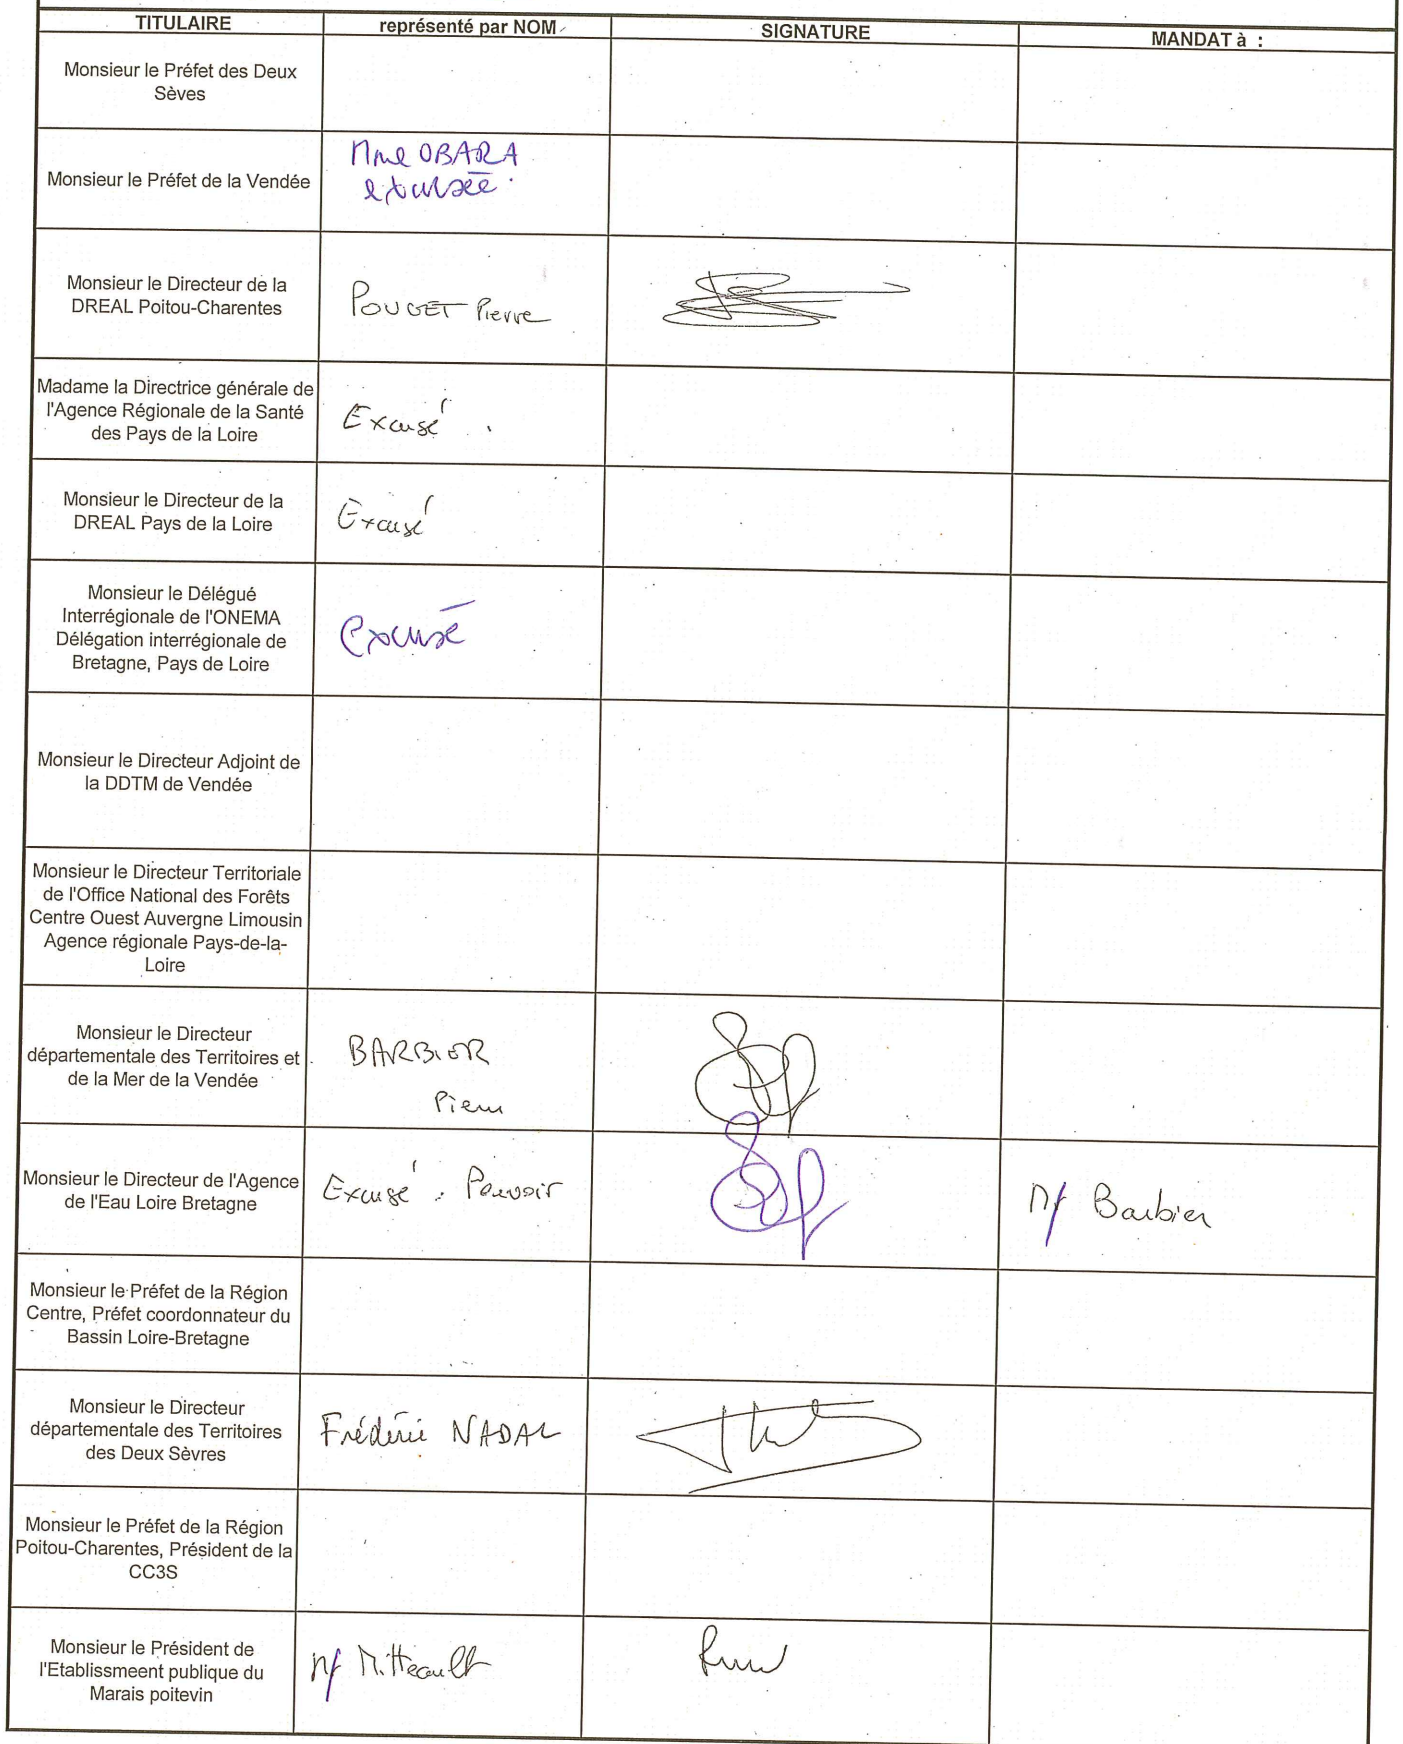 TITULAIRE
représenté par NOM
SIGNATURE
MANDAT à :
Monsieur le Préfet des Deux
Sèves
Monsieur le Préfet de la Vendée
Mme OBARA
excusée.
Monsieur le Directeur de la
DREAL Poitou-Charentes
POUGET Pierre
Madame la Directrice générale de
l'Agence Régionale de la Santé
des Pays de la Loire
Excusé.
Monsieur le Directeur de la
DREAL Pays de la Loire
Excusé
Monsieur le Délégué
Interrégionale de l'ONEMA
Délégation interrégionale de
Bretagne, Pays de Loire
excusé
Monsieur le Directeur Adjoint de
la DDTM de Vendée
Monsieur le Directeur Territoriale
de l'Office National des Forêts
Centre Ouest Auvergne Limousin
Agence régionale Pays-de-la-
Loire
Monsieur le Directeur
départementale des Territoires et
de la Mer de la Vendée
BARBIER
Pierre
Monsieur le Directeur de l'Agence
de l'Eau Loire Bretagne
Excusé. Pouvoir
Mr Barbier
Monsieur le Préfet de la Région
Centre, Préfet coordonnateur du
Bassin Loire-Bretagne
Monsieur le Directeur
départementale des Territoires
des Deux Sèvres
Frédéric NADAL
Monsieur le Préfet de la Région
Poitou-Charentes, Président de la
CC3S
Monsieur le Président de
l'Etablissmeent publique du
Marais poitevin
Mr Mitteault